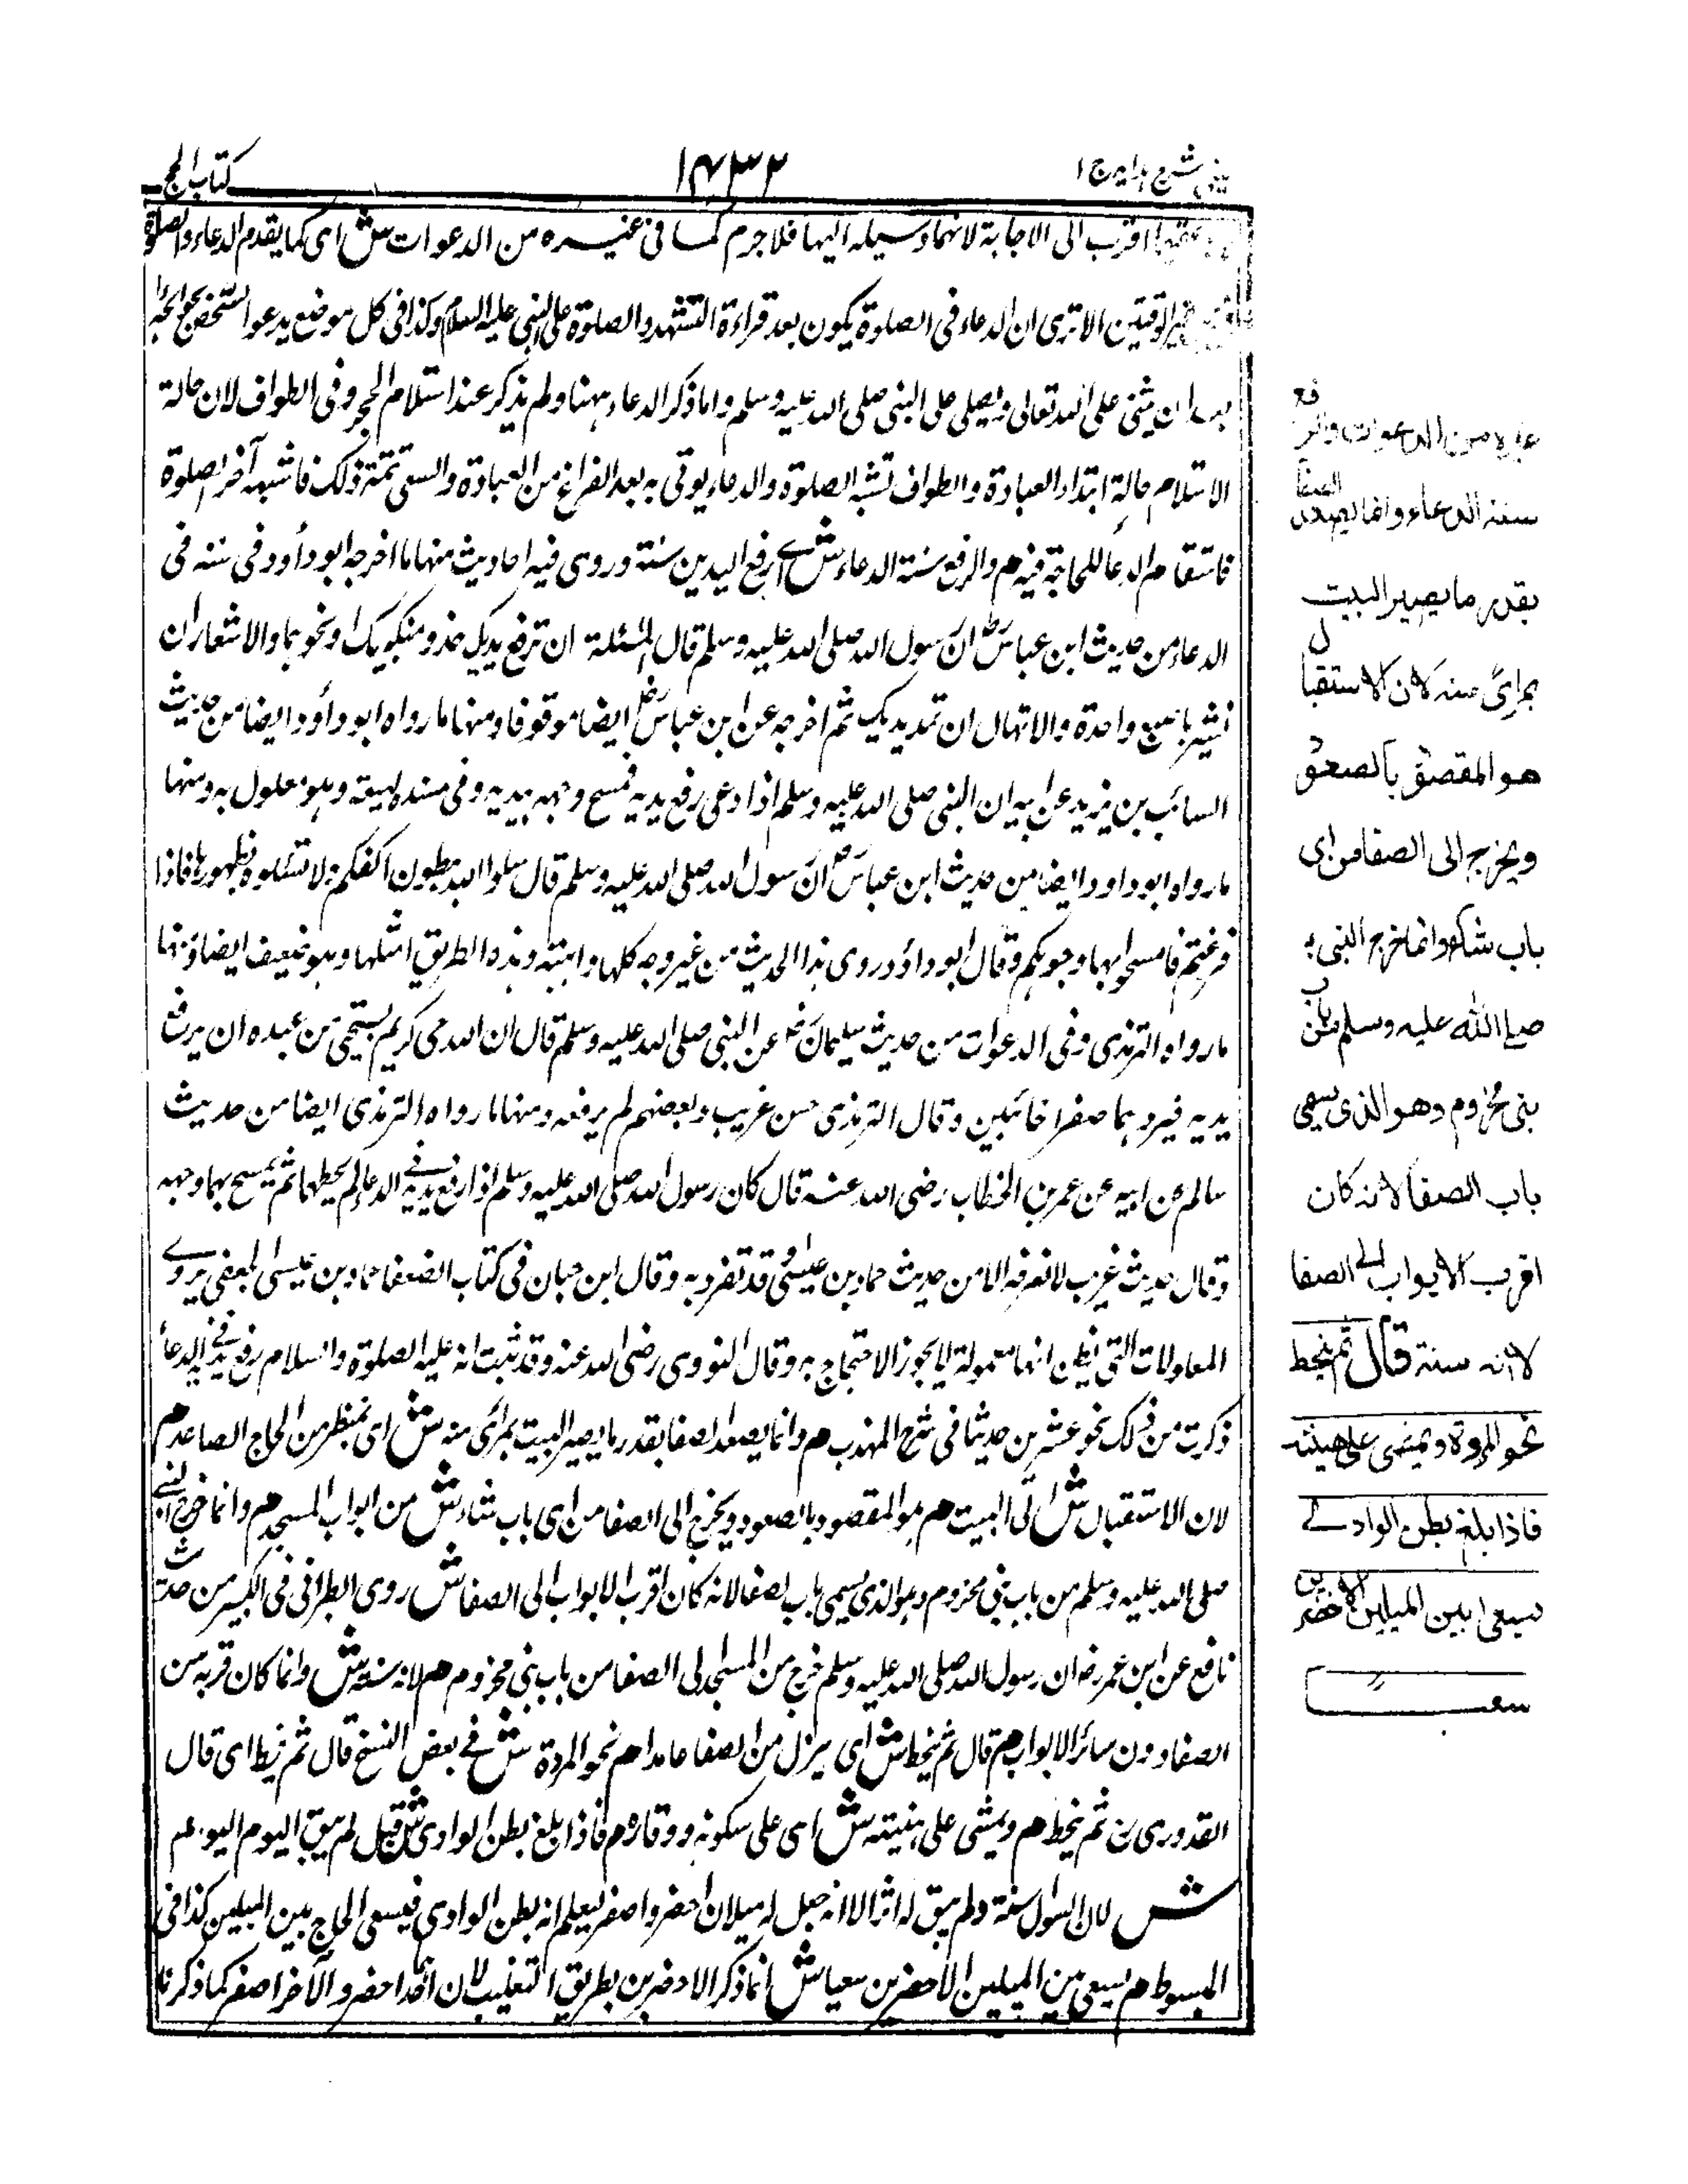 عینی شرح ہدایہ ج ۱
۱۴۳۲
كتاب الحج
اقرب الى الاجابة لانهما وسيلة اليها فلاجرم كما فى غيره من الدعوات ش اى كما يقدم الدعاء والصلوة
غير الوقتين الا ترى ان الدعاء فى الصلوة يكون بعد قراءة التشهد والصلوة على النبى عليه السلام وكذا فى كل موضع يدعو الشخص
بعد ان يثنى على الله تعالى ويصلى على النبى صلى الله عليه وسلم واما ذكر الدعاء ههنا ولم يذكر عند استلام الحجر وفى الطواف لان حالة
الاستلام حالة ابتداء العبادة والطواف تشبه الصلوة والدعاء يوتى به بعد الفراغ من العبادة والسعى تتمة ذلك فاشبه آخر الصلوة
فاستقام الدعا للحاجة فيه م والرفع سنة الدعاء ش اے رفع اليدين سنة وروى فيه احاديث منها ما اخرجه ابو داؤد فى سننه فى
الدعاء من حديث ابن عباس رض ان رسول الله صلى الله عليه وسلم قال المسئلة ان ترفع يديك حذو منكبيك او نحوهما والاشعار ان
تشير باصبع واحدة والابتهال ان تمد يديك ثم اخرجه عن ابن عباس رض ايضا موقوفا ومنها ما رواه ابو داؤد ايضا من حديث
السائب بن يزيد عن ابيه ان النبى صلى الله عليه وسلم اذا دعى رفع يديه فمسح وجهه بيديه وفى سنده لهيعة وهو معلول به ومنها
ما رواه ابو داود ايضا من حديث ابن عباس رض ان رسول الله صلى الله عليه وسلم قال سلوا الله ببطون اكفكم ولا تسئلوه بظهورها فاذا
فرغتم فامسحوا بها وجوهكم وقال ابو داؤد روى هذا الحديث من غير وجه كلها واهية وهذه الطريق امثلها وهو ضعيف ايضا ومنها
ما رواه الترمذى وفى الدعوات من حديث سليمان رض عن النبى صلى الله عليه وسلم قال ان الله حى كريم يستحيى من عبده ان يرفع
يديه فيردهما صفرا خائبين وقال الترمذى حسن غريب وبعضهم لم يرفعه ومنها ما رواه الترمذى ايضا من حديث
سالم عن ابيه عن عمر بن الخطاب رضى الله عنه قال كان رسول الله صلى الله عليه وسلم اذا رفع يديه فے الدعاء لم يحطهما ثم يمسح بهما وجهه
وقال حديث غريب لا نعرفه الا من حديث حماد بن عيسى قد تفرد به وقال ابن حبان فى كتاب الضعفا حماد بن عيسى الجعفى يروے
المعاولات التى يظن انها معمولة لا يجوز الاحتجاج به وقال النووى رضى الله عنه وقد ثبت انه عليه الصلوة والسلام رفع يديه فے الدعا
ذكرت من ذلك نحو عشرين حديثا فى شرح المهذب م وانما يصعد الصفا بقدر ما يصير البيت بمرأى منه ش اى بمنظر من الحاج الصاعد م
لان الاستقبال ش اى الى البيت م هو المقصود بالصعود ويخرج الى الصفا من اى باب شاء ش من ابواب المسجد م وانما خرج النبے
صلى الله عليه وسلم من باب بنى مخزوم وهو الذى يسمى باب لصفا لانه كان اقرب الابواب الى الصفا ش روى الطبرانى فى الكبير من حديث
نافع عن ابن عمر رضه ان رسول الله صلى الله عليه وسلم خرج من المسجد الى الصفا من باب بنى مخزوم م لا انه سنة ش وانما كان قربه من
الصفا دون سائر الابواب م قال ثم ينحط ش اى ينزل من الصفا عامدا م نحو المروة ش فے بعض النسخ قال ثم ينحط اى قال
القدورى رح ثم ينحط م ويمشى على هنيته ش اى على سكونه ووقاره م فاذا بلغ بطن الوادى ش قبل لم يبق اليوم
ش لان السيول سنة ولم يبق له اثر الا انه جعل له ميلان اخضر واصفر ليعلم انه بطن الوادى فيسعى الحاج بين الميلين كذا فى
المبسوط م يسعى بين الميلين الاخضرين سعيا ش انما ذكر الاخضرين بطريق التغليب لان احدهما اخضر والآخر اصفر كما ذكرنا
غيره من الدعوات والرفع
سنة الدعاء وانما يصعد الصفا
بقدر ما يصير البيت
بمرأى منه لان الاستقبال
هو المقصود بالصعود
ويخرج الى الصفا من اى
باب شاء وانما خرج النبى
صلے الله عليه وسلم من باب
بنى مخزوم وهو الذى يسمى
باب الصفا لانه كان
اقرب الابواب الے الصفا
لا انه سنة قال ثم ينحط
نحو المروة ويمشى على هينته
فاذا بلغ بطن الوادے
يسعى بين الميلين الاخضرين
سعيا